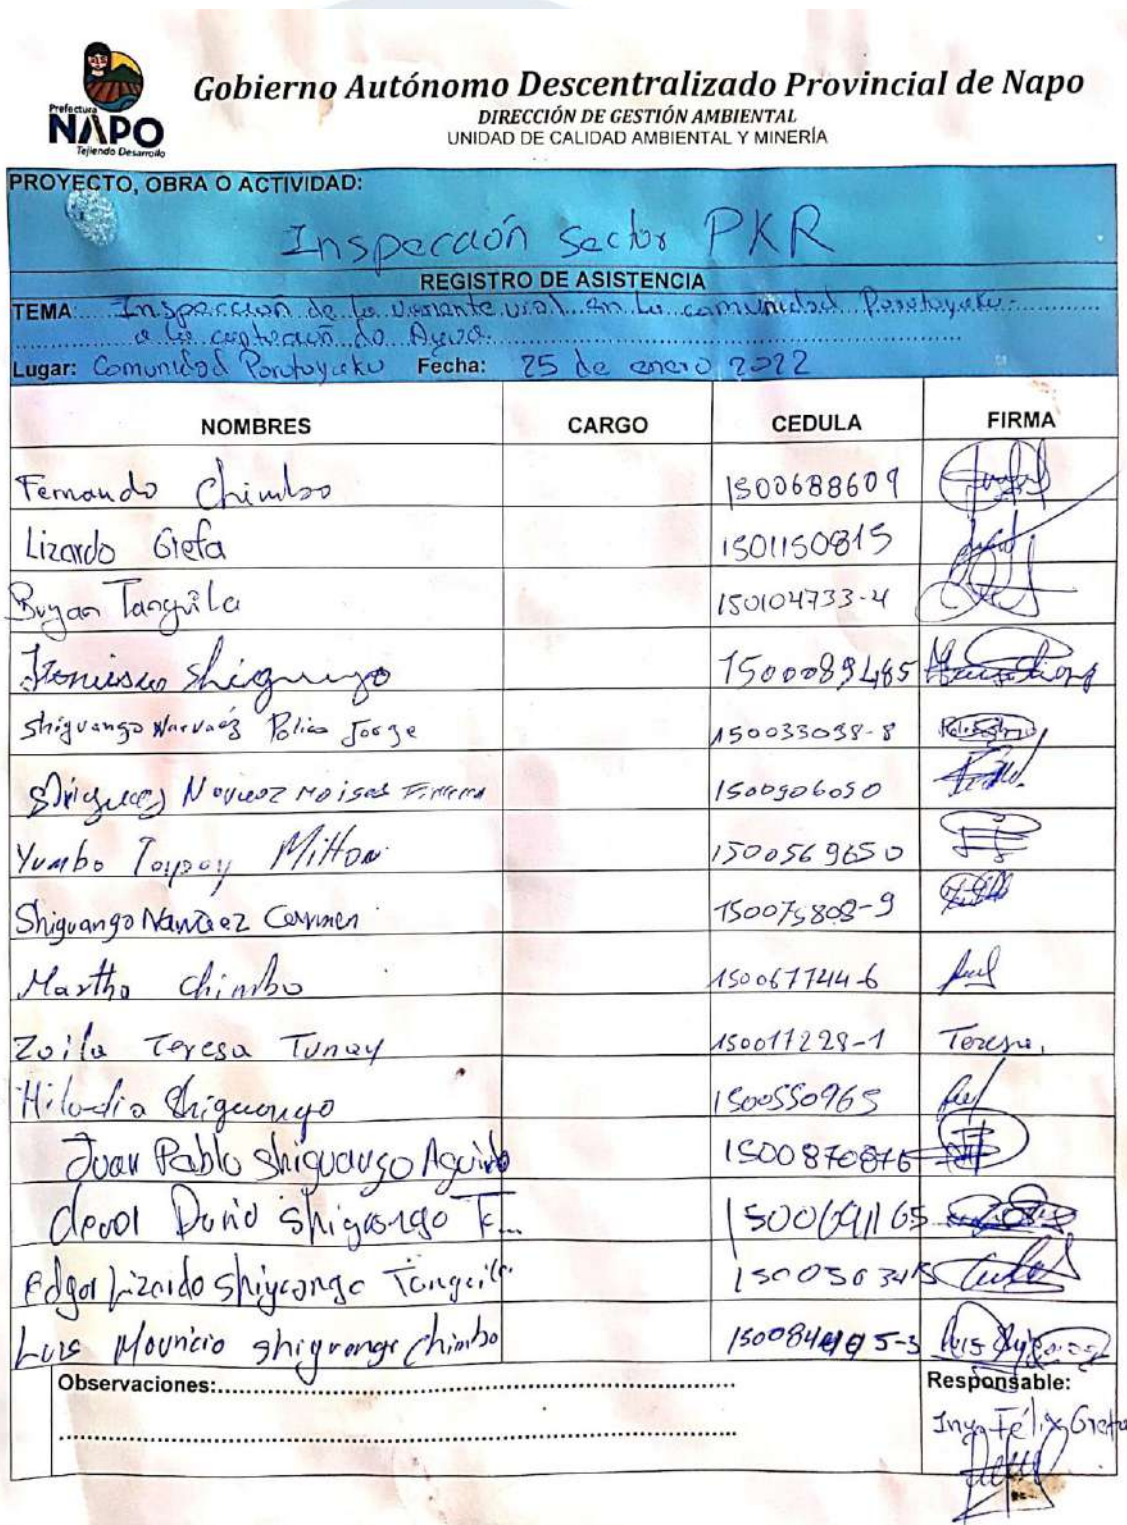 Prefectura
NAPO
Tejiendo Desarrollo
Gobierno Autónomo Descentralizado Provincial de Napo
DIRECCIÓN DE GESTIÓN AMBIENTAL
UNIDAD DE CALIDAD AMBIENTAL Y MINERÍA
PROYECTO, OBRA O ACTIVIDAD:
Inspección Sector PKR
REGISTRO DE ASISTENCIA
TEMA: Inspección de la variante vial en la comunidad Porotoyaku
a la captación de Agua.
Lugar: Comunidad Porotoyaku Fecha: 25 de enero 2022
NOMBRES CARGO CEDULA FIRMA
Fernando Chimbo 1500688609
Lizardo Grefa 1501150815
Bryan Tanguila 150104733-4
Shiguango 1500089485
Shiguango Narvaez Polico Jorge 150033098-8
Moises 1500906050
Yumbo Milton 1500569650
Shiguango Narvaez Carmen 150075808-9
Martha Chimbo 150067744-6
Zoila Teresa Tunay 150017228-1 Teresa
Hiladia Shiguango 1500550965
Juan Pablo Shiguango Aguinda 1500870876
David Shiguango T... 1500691165
Edgar Lizardo Shiguango Tanguila
Luis Mauricio Shiguango Chimbo Luis
Observaciones:
Responsable:
Ing. Félix Grefa